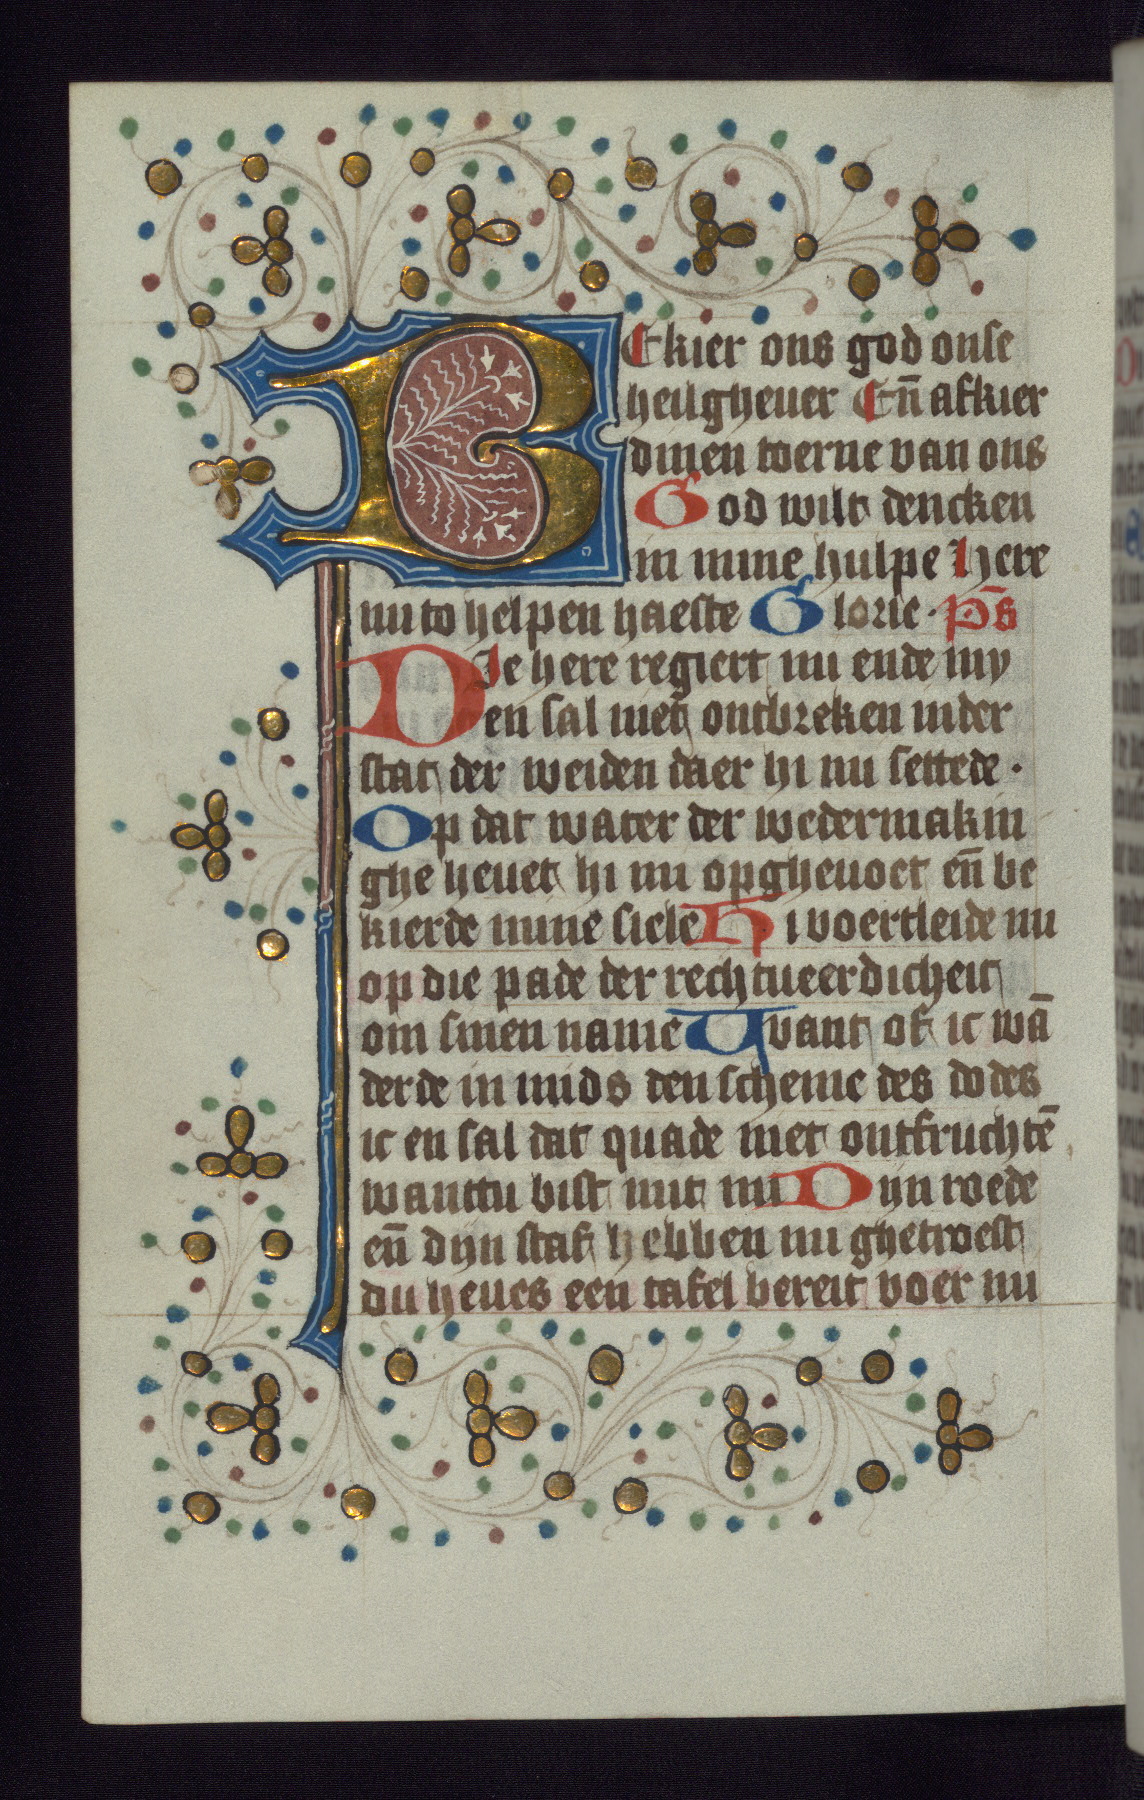 BEkier ons god onse
heilgheuer En̄ afkier
dinen toerne van ons
God wilt dencken
in mine hulpe Here
mi to helpen haeste Glorie · P̄s
DIe here regiert mi ende my
en sal niet ontbreken inder
stat der weiden daer hi mi settede ·
Op dat water der wedermakin
ghe heuet hi mi opgheuoet en̄ be
kierde mine siele Hi voertleide mi
op die pade der rechtueerdicheit
om sinen name Want of ic wā
derde in mids den scheme des dodes
ic en sal dat quade niet ontfruchtē
wanttu bist mit mi Dijn roede
en̄ dijn staf hebben mi ghetroest
du heues een tafel bereit voer mi